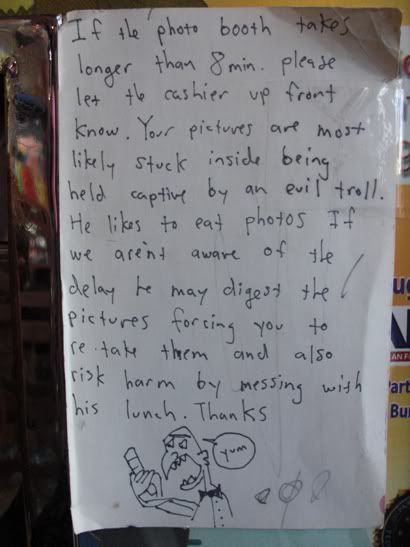 If the photo booth takes
longer than 8 min. please
let the cashier up front
know. Your pictures are most
likely stuck inside being
held captive by an evil troll.
He likes to eat photos If
we aren't aware of the
delay he may digest the
pictures forcing you to
re-take them and also
risk harm by messing with
his lunch. Thanks
yum